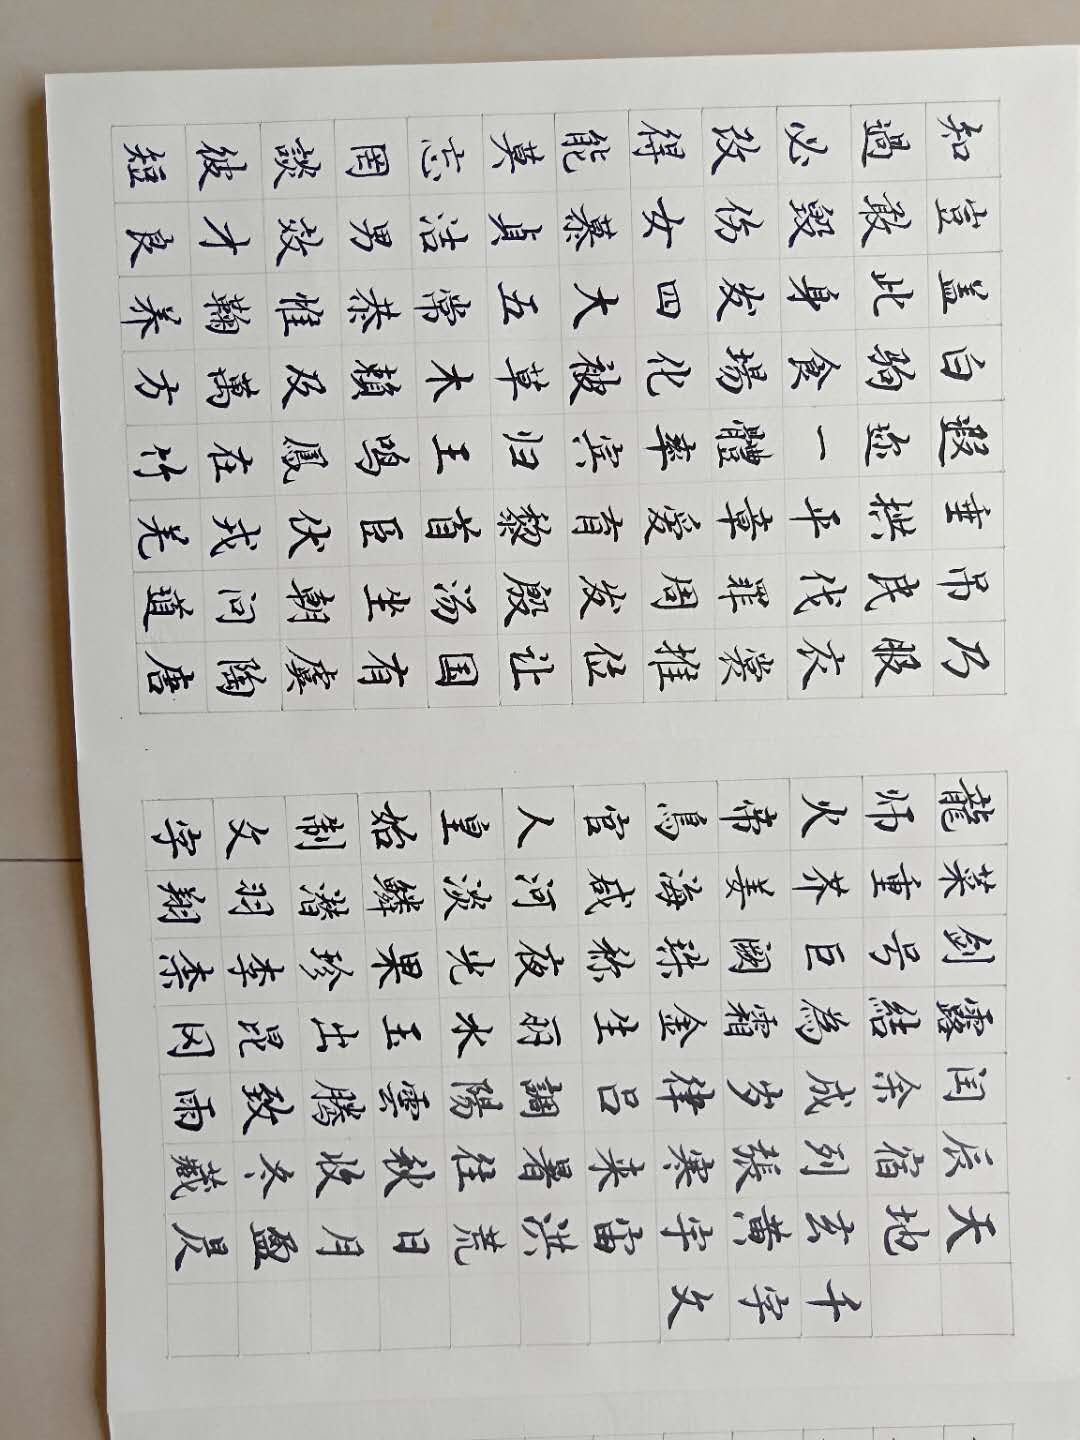 千字文
天地玄黄宇宙洪荒日月盈昃
辰宿列張寒来暑往秋收冬藏
闰余成岁律吕調陽雲騰致雨
露結為霜金生丽水玉出昆冈
剑号巨阙珠称夜光果珍李柰
菜重芥姜海咸河淡鱗潜羽翔
龍师火帝鳥官人皇始制文字
乃服衣裳推位让国有虞陶唐
吊民伐罪周发殷汤坐朝问道
垂拱平章爱育黎首臣伏戎羌
遐迩一體率宾归王鸣鳳在竹
白驹食場化被草木賴及萬方
盖此身发四大五常恭惟鞠养
豈敢毁伤女慕貞洁男效才良
知過必改得能莫忘罔談彼短